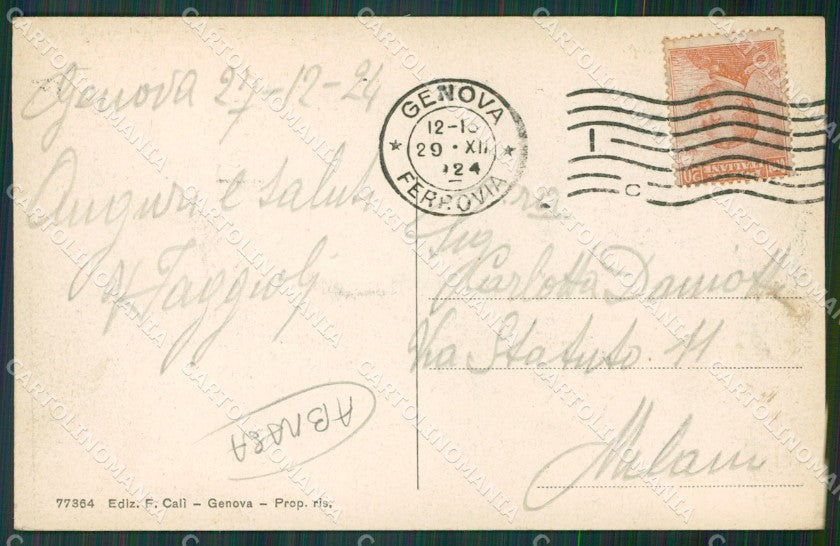 Genova 27-12-24
Auguri e saluti
Faggioli
GENOVA
12-18
29 • XII
924
FERROVIA
I
C
ITALIANE
20
Sig.ra
Carlotta
Via Statuto. 11
Milano
ABNASA
77364 Ediz. F. Calì - Genova - Prop. ris.
CARTOLINOMANIA